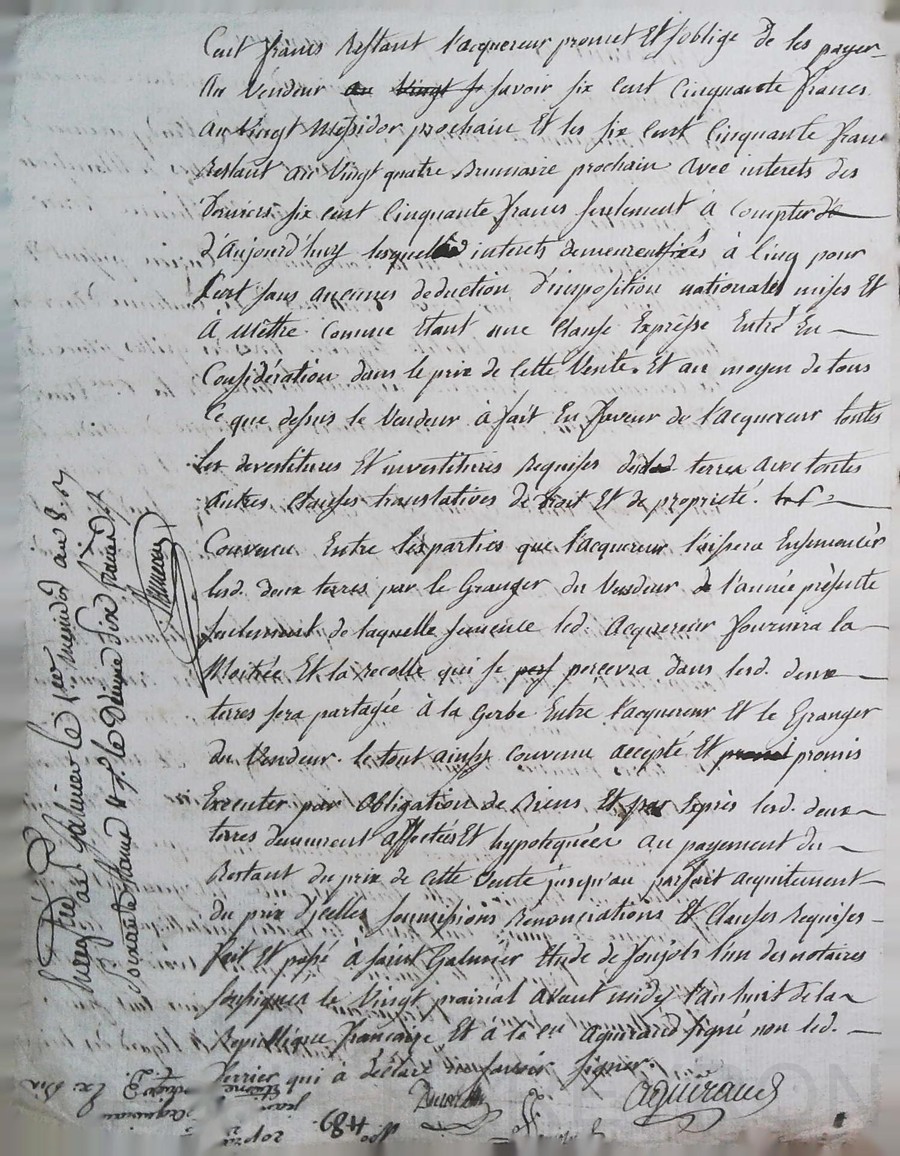 Cent francs Restant l'acquereur promet Et soblige de les payer
Au Vendeur au Vingt savoir six Cent Cinquante francs
Au Vingt Messidor prochain Et les six Cent Cinquante franc
Restant au Vingt quatre Brumaire prochain avec interets des
Derniers six cent Cinquante francs seulement à Compter de
d'Aujourd'huy lesquelles interets demeurent fixés à Cinq pour
Cent sans aucunes deduction d'imposition nationales mises Et
à Mêttre Comme Etant une Clause Expresse Entré En
Considération dans le prix de Cette Vente. Et au moyen de tous
Ce que dessus le Vendeur à fait En faveur de l'acquereur toutes
Les devestitures Et investitures Requises terres avec toutes
autres Clauses translatives de droit Et de propriété.
Convenu Entre les parties que l'acquereur laissera Ensemencer
lesd. deux terres par le Granger du Vendeur l'année présente
seulement de laquelle semence led. Acquereur fournira la
Moitiée Et la Recolte qui se percevra dans lesd. deux
terres sera partagée à la Gerbe Entre l'acquereur Et le Granger
du Vendeur. le tout ainsy Convenu accepté Et promis promis
Executer par Obligation de Biens Et par Exprès lesd. deux
terres demeurent affectées Et hypotequées au payement du
Restant du prix de Cette Vente jusqu'au parfait acquitement
du prix d'jcelles soumissions Renonciations Et Clauses Requises
fait Et passé à saint Galmier Etude de l'un des notaires
soussignés le Vingt prairial avant midy l'an huit de la
Republique française Et à le Cn. Aguiraud signé non led.
Verrier qui à déclaré ne savoir signer.
Aguiraud
Enreg. à St Galmier le 1er messidor an 8. R
soixante
No. 489